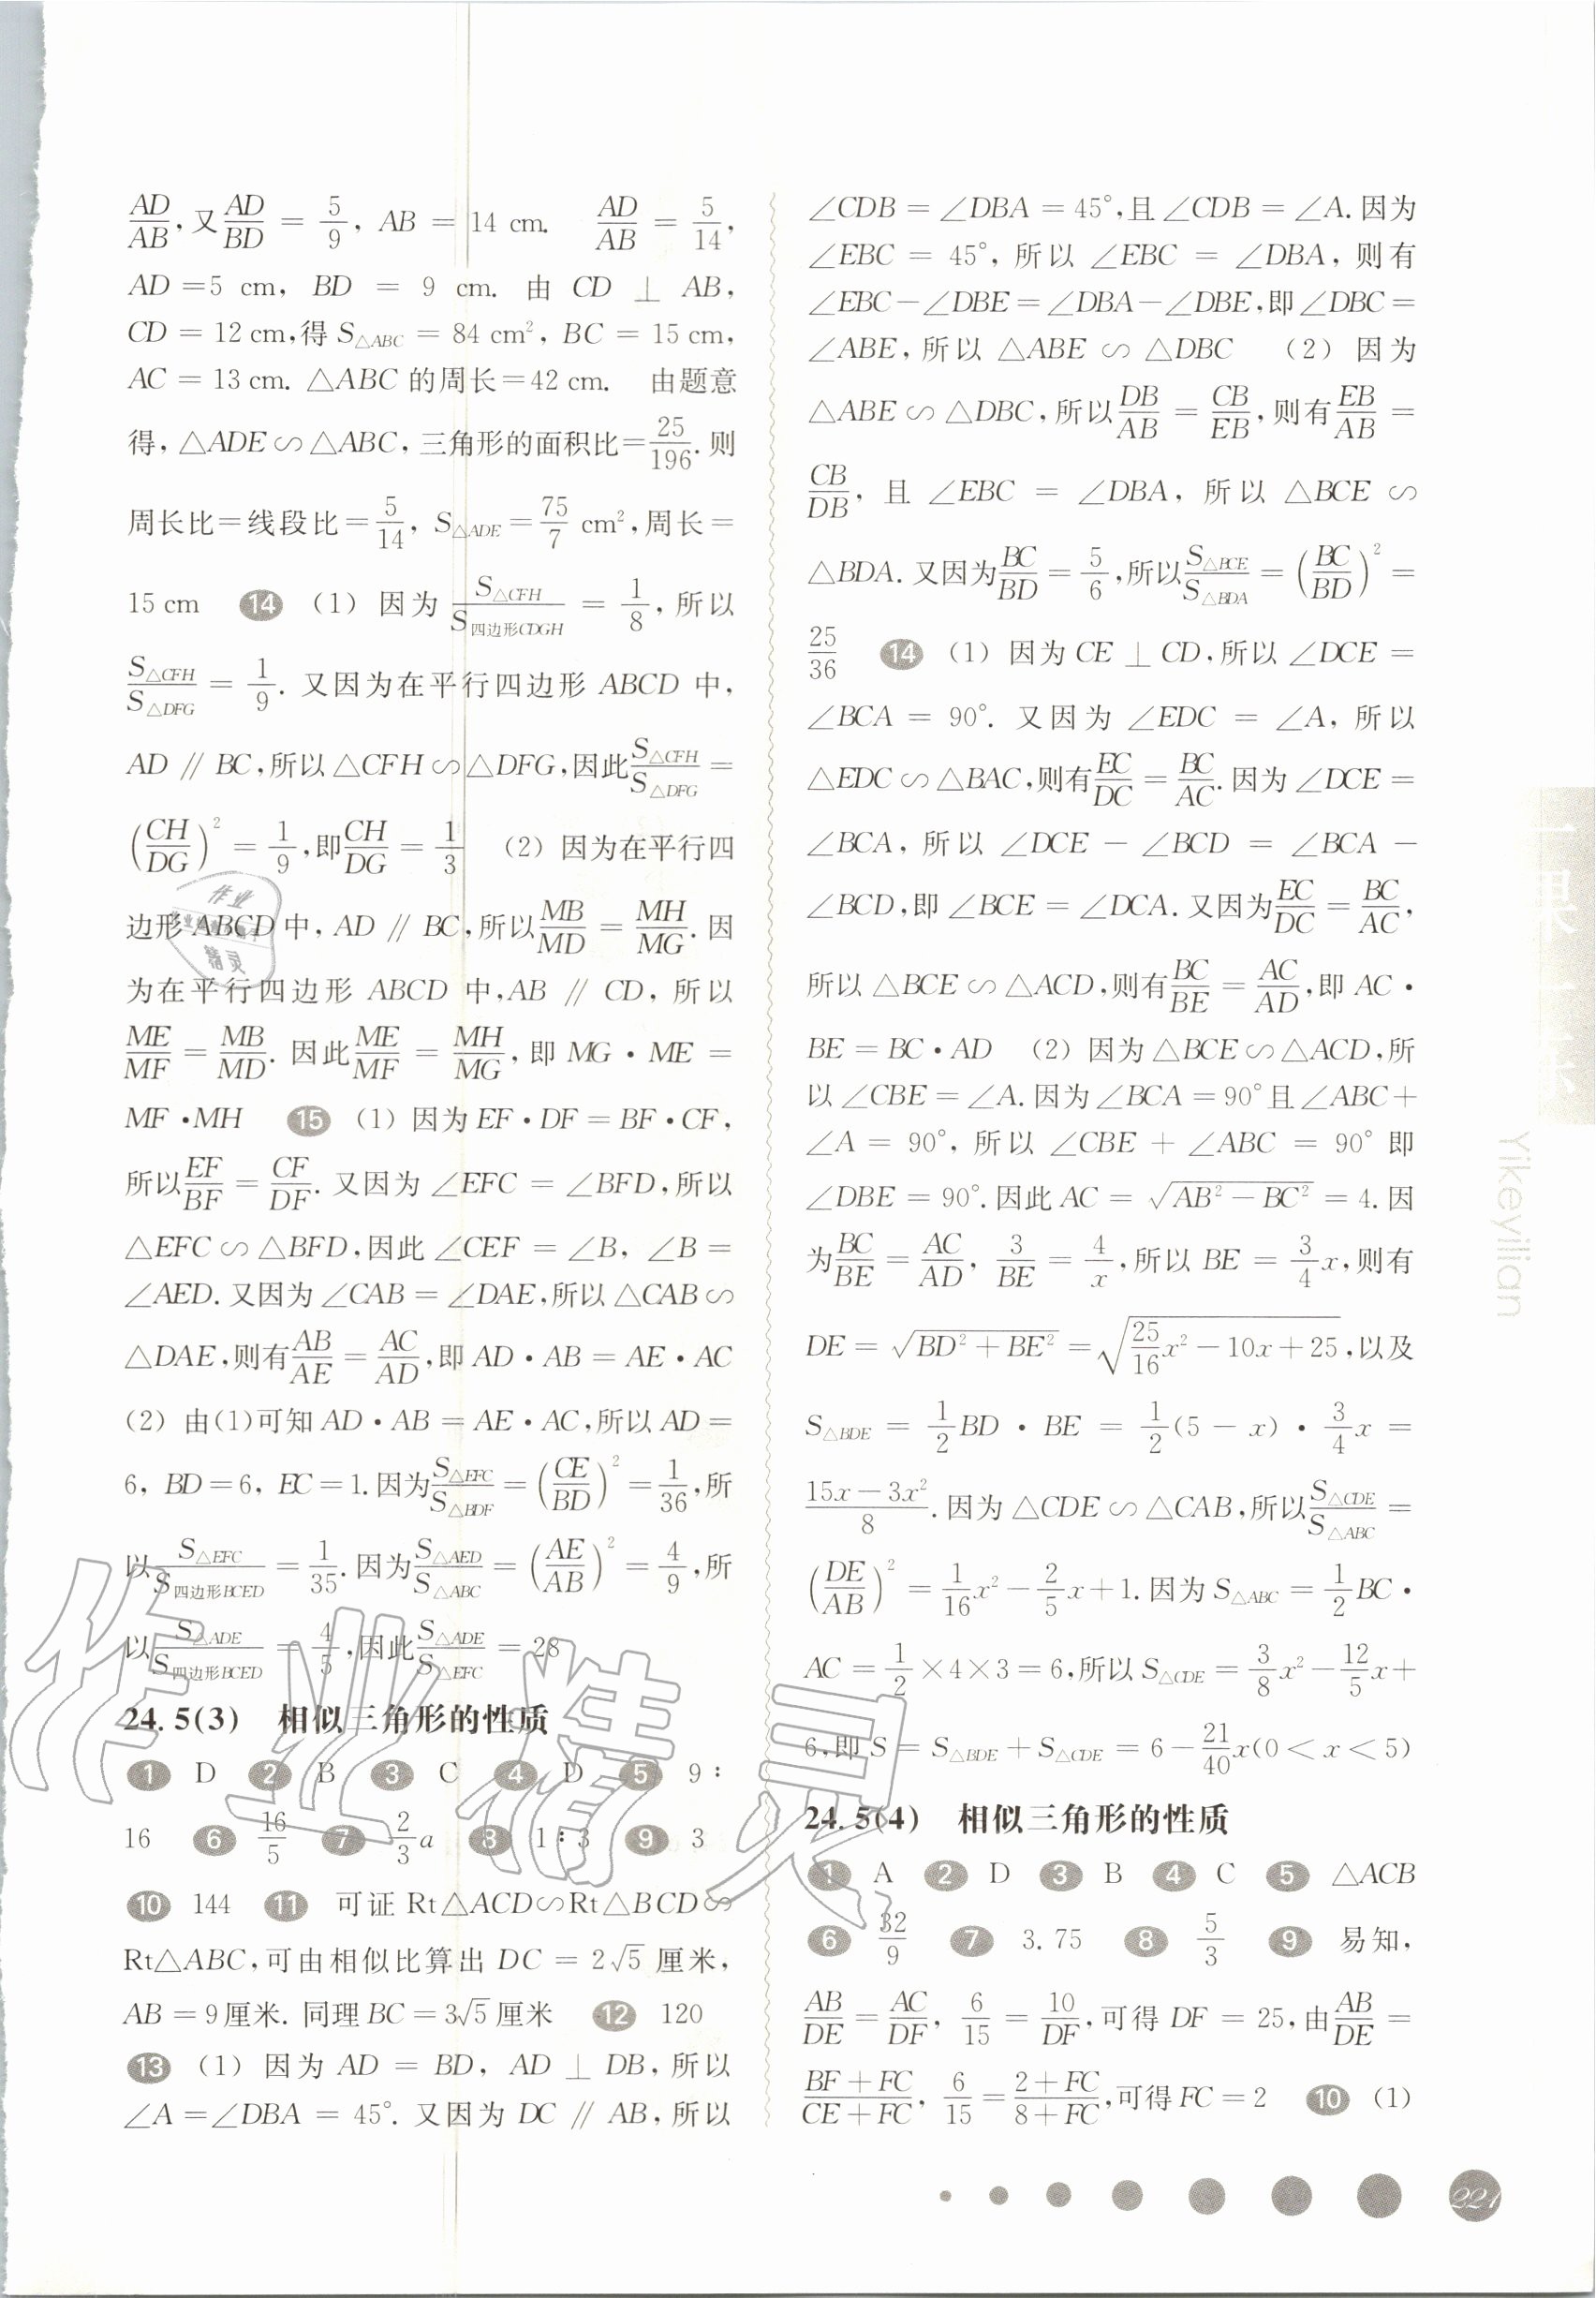 AD/AB, 又 AD/BD = 5/9, AB = 14 cm. AD/AB = 5/14,
AD = 5 cm, BD = 9 cm. 由 CD ⊥ AB,
CD = 12 cm, 得 S△ABC = 84 cm², BC = 15 cm,
AC = 13 cm. △ABC 的周长 = 42 cm. 由题意
得, △ADE ∽ △ABC, 三角形的面积比 = 25/196. 则
周长比 = 线段比 = 5/14, S△ADE = 75/7 cm², 周长 =
15 cm 14 (1) 因为 S△CFH/S四边形CDGH = 1/8, 所以
S△CFH/S△DFG = 1/9. 又因为在平行四边形 ABCD 中,
AD ∥ BC, 所以 △CFH ∽ △DFG, 因此 S△CFH/S△DFG =
(CH/DG)² = 1/9, 即 CH/DG = 1/3 (2) 因为在平行四
边形 ABCD 中, AD ∥ BC, 所以 MB/MD = MH/MG. 因
为在平行四边形 ABCD 中, AB ∥ CD, 所以
ME/MF = MB/MD. 因此 ME/MF = MH/MG, 即 MG · ME =
MF · MH 15 (1) 因为 EF · DF = BF · CF,
所以 EF/BF = CF/DF. 又因为 ∠EFC = ∠BFD, 所以
△EFC ∽ △BFD, 因此 ∠CEF = ∠B, ∠B =
∠AED. 又因为 ∠CAB = ∠DAE, 所以 △CAB ∽
△DAE, 则有 AB/AE = AC/AD, 即 AD · AB = AE · AC
(2) 由(1)可知 AD · AB = AE · AC, 所以 AD =
6, BD = 6, EC = 1. 因为 S△EFC/S△BDF = (CE/BD)² = 1/36, 所
以 S△EFC/S四边形BCED = 1/35. 因为 S△AED/S△ABC = (AE/AB)² = 4/9, 所
以 S△ADE/S四边形BCED = 4/5, 因此 S△ADE/S△EFC = 28
24.5(3) 相似三角形的性质
1 D 2 B 3 C 4 D 5 9 :
16 6 16/5 7 2/3 a 8 1 : 3 9 3
10 144 11 可证 Rt△ACD∽Rt△BCD∽
Rt△ABC, 可由相似比算出 DC = 2√5 厘米,
AB = 9 厘米. 同理 BC = 3√5 厘米 12 120
13 (1) 因为 AD = BD, AD ⊥ DB, 所以
∠A = ∠DBA = 45°. 又因为 DC ∥ AB, 所以
∠CDB = ∠DBA = 45°, 且 ∠CDB = ∠A. 因为
∠EBC = 45°, 所以 ∠EBC = ∠DBA, 则有
∠EBC − ∠DBE = ∠DBA − ∠DBE, 即 ∠DBC =
∠ABE, 所以 △ABE ∽ △DBC (2) 因为
△ABE ∽ △DBC, 所以 DB/AB = CB/EB, 则有 EB/AB =
CB/DB, 且 ∠EBC = ∠DBA, 所以 △BCE ∽
△BDA. 又因为 BC/BD = 5/6, 所以 S△BCE/S△BDA = (BC/BD)² =
25/36 14 (1) 因为 CE ⊥ CD, 所以 ∠DCE =
∠BCA = 90°. 又因为 ∠EDC = ∠A, 所以
△EDC ∽ △BAC, 则有 EC/DC = BC/AC. 因为 ∠DCE =
∠BCA, 所以 ∠DCE − ∠BCD = ∠BCA −
∠BCD, 即 ∠BCE = ∠DCA. 又因为 EC/DC = BC/AC,
所以 △BCE ∽ △ACD, 则有 BC/BE = AC/AD, 即 AC ·
BE = BC · AD (2) 因为 △BCE ∽ △ACD, 所
以 ∠CBE = ∠A. 因为 ∠BCA = 90° 且 ∠ABC +
∠A = 90°, 所以 ∠CBE + ∠ABC = 90° 即
∠DBE = 90°. 因此 AC = √(AB² − BC²) = 4. 因
为 BC/BE = AC/AD, 3/BE = 4/x, 所以 BE = 3/4 x, 则有
DE = √(BD² + BE²) = √(25/16 x² − 10x + 25), 以及
S△BDE = 1/2 BD · BE = 1/2 (5 − x) · 3/4 x =
(15x − 3x²)/8. 因为 △CDE ∽ △CAB, 所以 S△CDE/S△ABC =
(DE/AB)² = 1/16 x² − 2/5 x + 1. 因为 S△ABC = 1/2 BC ·
AC = 1/2 × 4 × 3 = 6, 所以 S△CDE = 3/8 x² − 12/5 x +
6, 即 S = S△BDE + S△CDE = 6 − 21/40 x (0 < x < 5)
24.5(4) 相似三角形的性质
1 A 2 D 3 B 4 C 5 △ACB
6 32/9 7 3.75 8 5/3 9 易知,
AB/DE = AC/DF, 6/15 = 10/DF, 可得 DF = 25, 由 AB/DE =
(BF + FC)/(CE + FC), 6/15 = (2 + FC)/(8 + FC), 可得 FC = 2 10 (1)
一课一练
Yikeyilian
221
作业精灵
作业
精灵